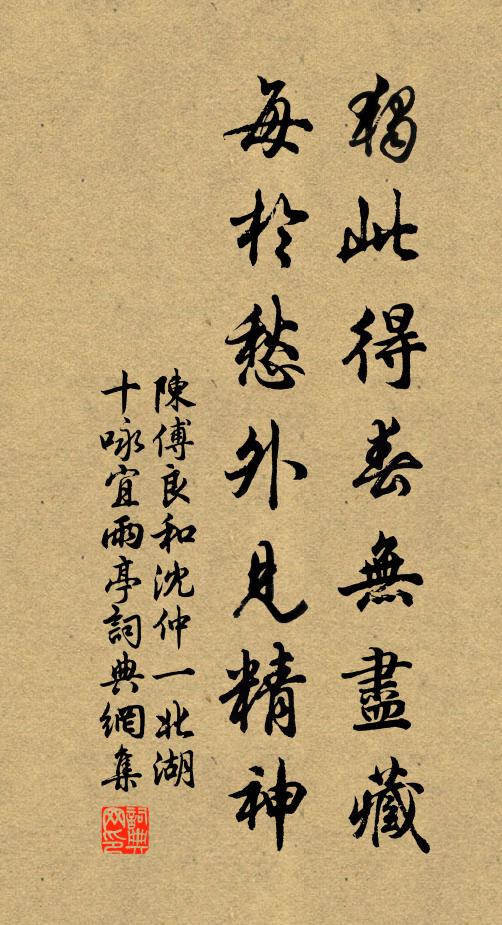 獨此得春無盡藏
每於愁外見精神
陳傅良和沈仲一北湖
十咏宜雨亭詞典網集
詞典
网印